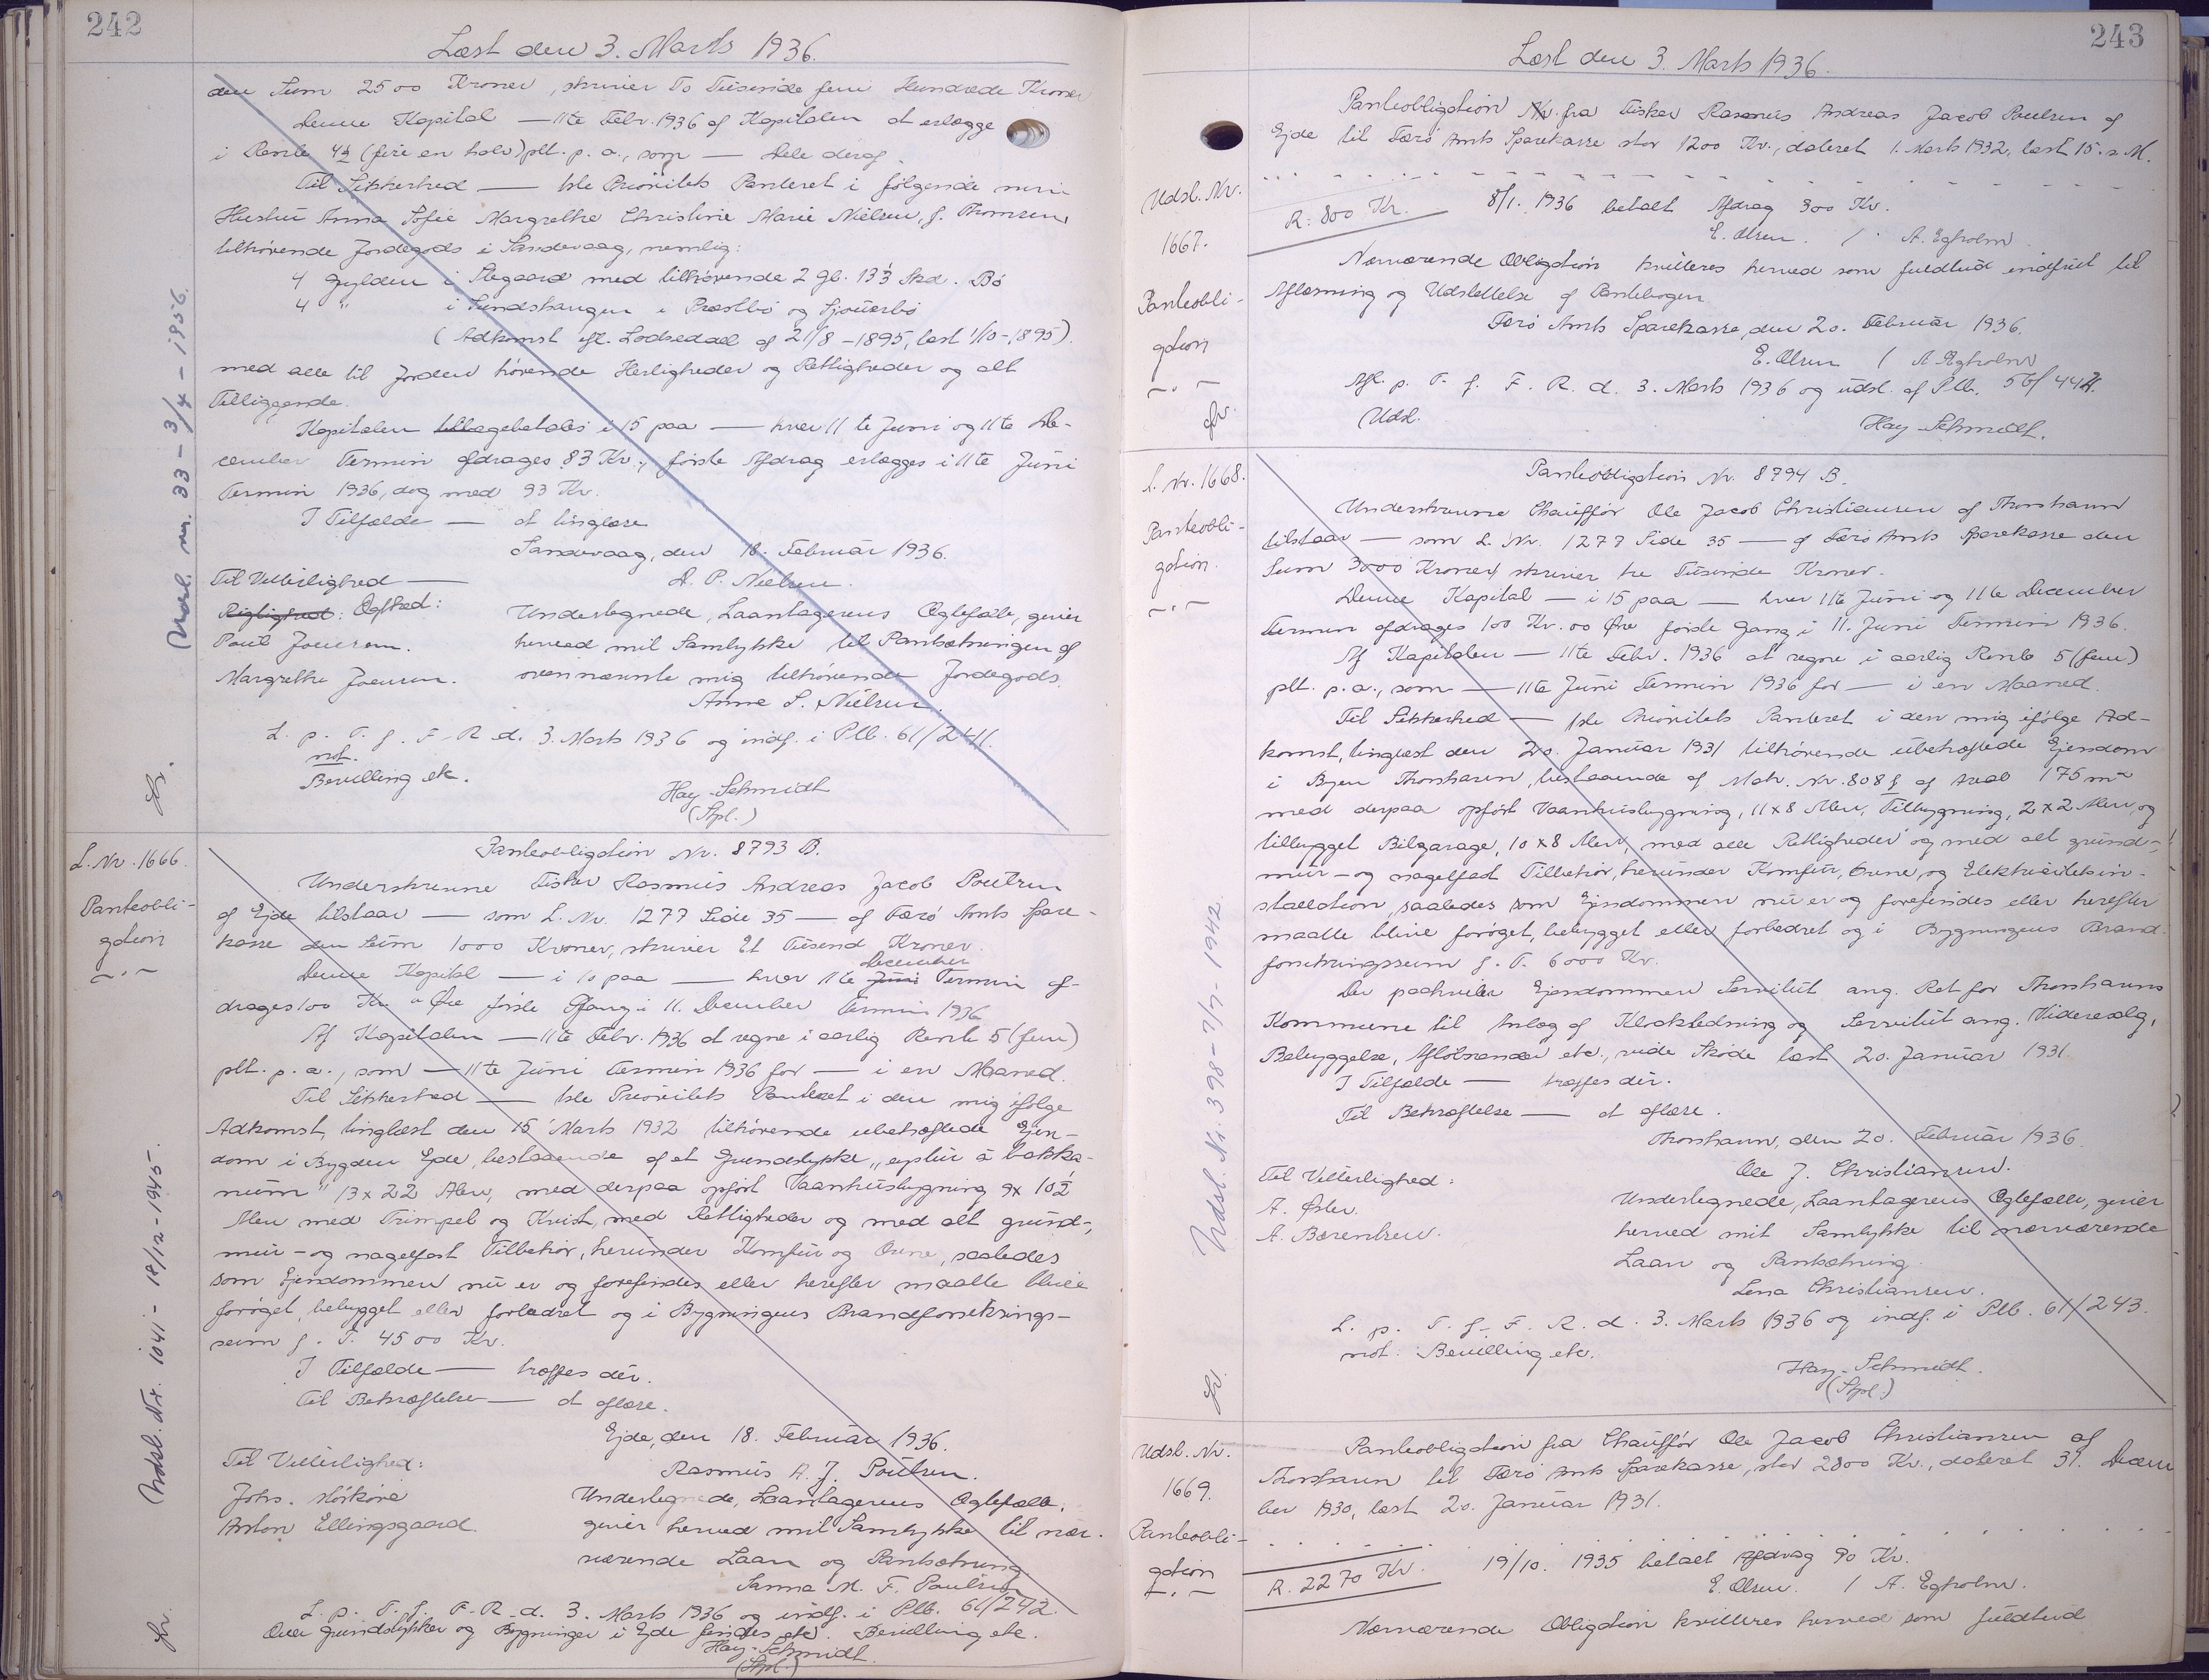 242
Læst den 3. Marts 1936.
den Sum 2500 Kroner, skriver To Tusinde fem Hundrede Kroner
Denne Kapital — 11te Febr. 1936 af Kapitalen at erlægge
i Rente 4½ (fire en halv) pCt. p. a., som — Hele deraf.
Til Sikkerhed — 1ste Prioritets Panteret i følgende min
Hustru Anna Sofie Margrethe Christine Marie Nielsen, f. Thomsen
tilhørende Jordegods i Sandevaag, nemlig:
4 Gylden i Slegaard med tilhørende 2 Gl. 13⅓ Skd. Bø
4 " i Sundshaugen i Præstbø og Sjouerbø
(Adkomst efl. Lodseddel af 21/8 - 1895, læst 1/10 - 1895).
med alle til Jorden hørende Herligheder og Rettigheder og alt
Tilliggende.
Kapitalen tilbagebetales i 15 paa — hver 11te Juni og 11te De-
cember Termin afdrages 83 Kr., første Afdrag erlægges i 11te Juni
Termin 1936, dog med 93 Kr.
I Tilfælde — at tinglæse
Sandevaag, den 18. Februar 1936.
Til Vitterlighed — D. P. Nielsen.
Rigtighed: Ægthed:
Poul Joensen.
Margrethe Joensen.
Undertegnede, Laantagerens Ægtefælle, giver
herved mit Samtykke til Pantsætningen af
ovennævnte mig tilhørende Jordegods.
Anna S. Nielsen.
L. p. T. f. F. R. d. 3. Marts 1936 og indf. i Plb. 61/241.
not.
Bevilling etc.
Hay-Schmidt
(Stpl.)
Udsl. nr. 33 - 3/4 - 1956.
L. Nr. 1666.
Panteobli-
gation
Panteobligation Nr. 8793 B.
Underskrevne Fisker Rasmus Andreas Jacob Poulsen
af Ejde tilstaar — som L. Nr. 1277 Side 35 — af Færø Amts Spare-
kasse den Sum 1000 Kroner, skriver Et Tusend Kroner.
Denne Kapital — i 10 paa — hver 11te Juni December Termin af-
drages 100 Kr. " Øre første Gang i 11. December Termin 1936
Af Kapitalen — 11te Febr. 1936 at regne i aarlig Rente 5 (fem)
pCt. p. a., som — 11te Juni Termin 1936 for — i en Maaned.
Til Sikkerhed — 1ste Prioritets Panteret i den mig ifølge
Adkomst, tinglæst den 15 Marts 1932 tilhørende ubehæftede Ejen-
dom i Bygden Ejde, bestaaende af et Grundstykke "eystur á bakka-
num" 13 x 22 Alen, med derpaa opført Vaanhusbygning 9 x 10½
Alen med Trimpel og Kvist, med Rettigheder og med alt grund-,
mur- og nagelfast Tilbehør, herunder Komfur og Ovne, saaledes
som Ejendommen nu er og forefindes eller herefter maatte blive
forøget, bebygget eller forbedret og i Bygningens Brandforsikrings-
sum p. T. 4500 Kr.
I Tilfælde — træffes dér.
Til Bekræftelse — at aflæse.
Ejde, den 18. Februar 1936.
Til Vitterlighed: Rasmus A. J. Poulsen.
Johs. Mørkøre
Anton Ellingsgaard
Undertegnede, Laantagerens Ægtefælle,
giver herved mit Samtykke til nær-
værende Laan og Pantsætning
Sanna M. F. Poulsen
L. p. T. f. F. R. d. 3. Marts 1936 og indf. i Plb. 61/242.
Over Grundstykker og Bygninger i Ejde findes etc. Bevilling etc.
Hay-Schmidt.
(Stpl.)
Udsl. Nr. 1041 - 18/12 - 1945.
243
Læst den 3. Marts 1936.
Udsl. Nr.
1667.
Panteobli-
gation
Panteobligation Nr. fra Fisker Rasmus Andreas Jacob Poulsen af
Ejde til Færø Amts Sparekasse stor 1200 Kr., dateret 1. Marts 1932, læst 15. s. M.
R. 800 Kr. 8/1. 1936 betalt Afdrag 300 Kr.
E. Olsen. / A. Egholm
Nærværende Obligation kvitteres herved som fuldtud indfriet til
Aflæsning og Udslettelse af Pantebogen
Færø Amts Sparekasse, den 20. Februar 1936.
E. Olsen / A. Egholm
Afl. p. T. f. F. R. d. 3. Marts 1936 og udsl. af Plb. 56/442.
Udsl. Hay-Schmidt.
L. Nr. 1668.
Panteobli-
gation.
Panteobligation Nr. 8794 B.
Underskrevne Chauffør Ole Jacob Christiansen af Thorshavn
tilstaar — som L. Nr. 1277 Side 35 — af Færø Amts Sparekasse den
Sum 3000 Kroner, skriver tre Tusinde Kroner.
Denne Kapital — i 15 paa — hver 11te Juni og 11te December
Termin afdrages 100 Kr. 00 Øre første Gang i 11. Juni Termin 1936.
Af Kapitalen — 11te Febr. 1936 at regne i aarlig Rente 5 (fem)
pCt. p. a., som — 11te Juni Termin 1936 for — i en Maaned.
Til Sikkerhed — 1ste Prioritets Panteret i den mig ifølge Ad-
komst, tinglæst den 20. Januar 1931 tilhørende ubehæftede Ejendom
i Byen Thorshavn, bestaaende af Matr. Nr. 808 f af Areal 175 m²
med derpaa opført Vaanhusbygning, 11 x 8 Alen, Tilbygning, 2 x 2 Alen, og
tilbygget Bilgarage, 10 x 8 Alen, med alle Rettigheder og med alt grund-,
mur- og nagelfast Tilbehør, herunder Komfur, Ovne, og Elektricitetsin-
stallation, saaledes som Ejendommen nu er og forefindes eller herefter
maatte blive forøget, bebygget eller forbedret og i Bygningens Brand-
forsikringssum p. T. 6000 Kr.
Der paahviler Ejendommen Servitut ang. Ret for Thorshavns
Kommune til Anlæg af Kloakledning og Servitut ang. Videresalg,
Bebyggelse, Afløbsrender etc., vide Skøde læst 20. Januar 1931.
I Tilfælde — træffes dér.
Til Bekræftelse — at aflæse.
Thorshavn, den 20. Februar 1936.
Til Vitterlighed: Ole J. Christiansen.
A. Øster.
A. Bærentsen.
Undertegnede, Laantagerens Ægtefælle, giver
herved mit Samtykke til nærværende
Laan og Pantsætning.
Lena Christiansen.
L. p. T. f. F. R. d. 3. Marts 1936 og indf. i Plb. 61/243.
not: Bevilling etc.
Hay-Schmidt.
(Stpl.)
Udsl. Nr. 398 - 7/7 - 1942.
Udsl. Nr.
1669.
Panteobli-
gation
Panteobligation fra Chauffør Ole Jacob Christiansen af
Thorshavn til Færø Amts Sparekasse, stor 2800 Kr., dateret 31. Decem
ber 1930, læst 20. Januar 1931.
R. 2270 Kr. 19/10. 1935 betalt Afdrag 90 Kr.
E. Olsen. / A. Egholm.
Nærværende Obligation kvitteres herved som fuldtud